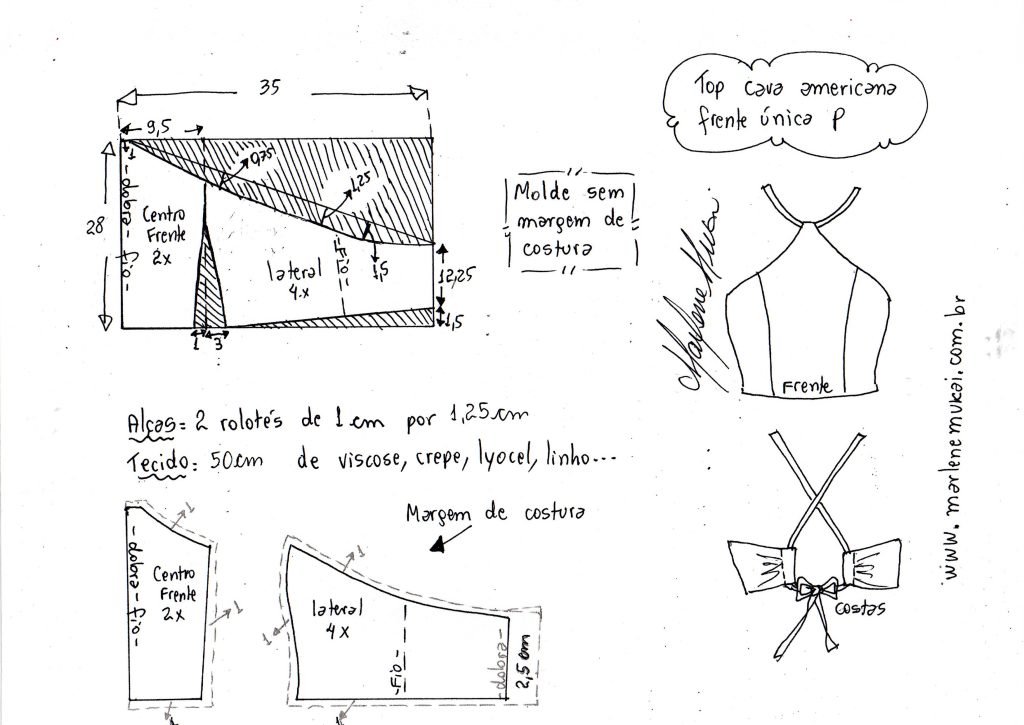 Top cava americana
frente única P
35
9,5
1
28
-dobra-fio-
Centro
Frente
2x
0,75
1,25
1,5
lateral
4.x
-Fio-
12,25
1,5
1
3
Molde sem
margem de
costura
Marlene Mukai
Frente
www.marlenemukai.com.br
Alças= 2 rolotés de 1 cm por 1,25 cm
Tecido: 50cm de viscose, crepe, lyocel, linho...
Margem de costura
1
-dobra-fio-
Centro
Frente
2x
1
1
1
1
lateral
4x
-Fio-
-dobra-
2,5 cm
1
costas